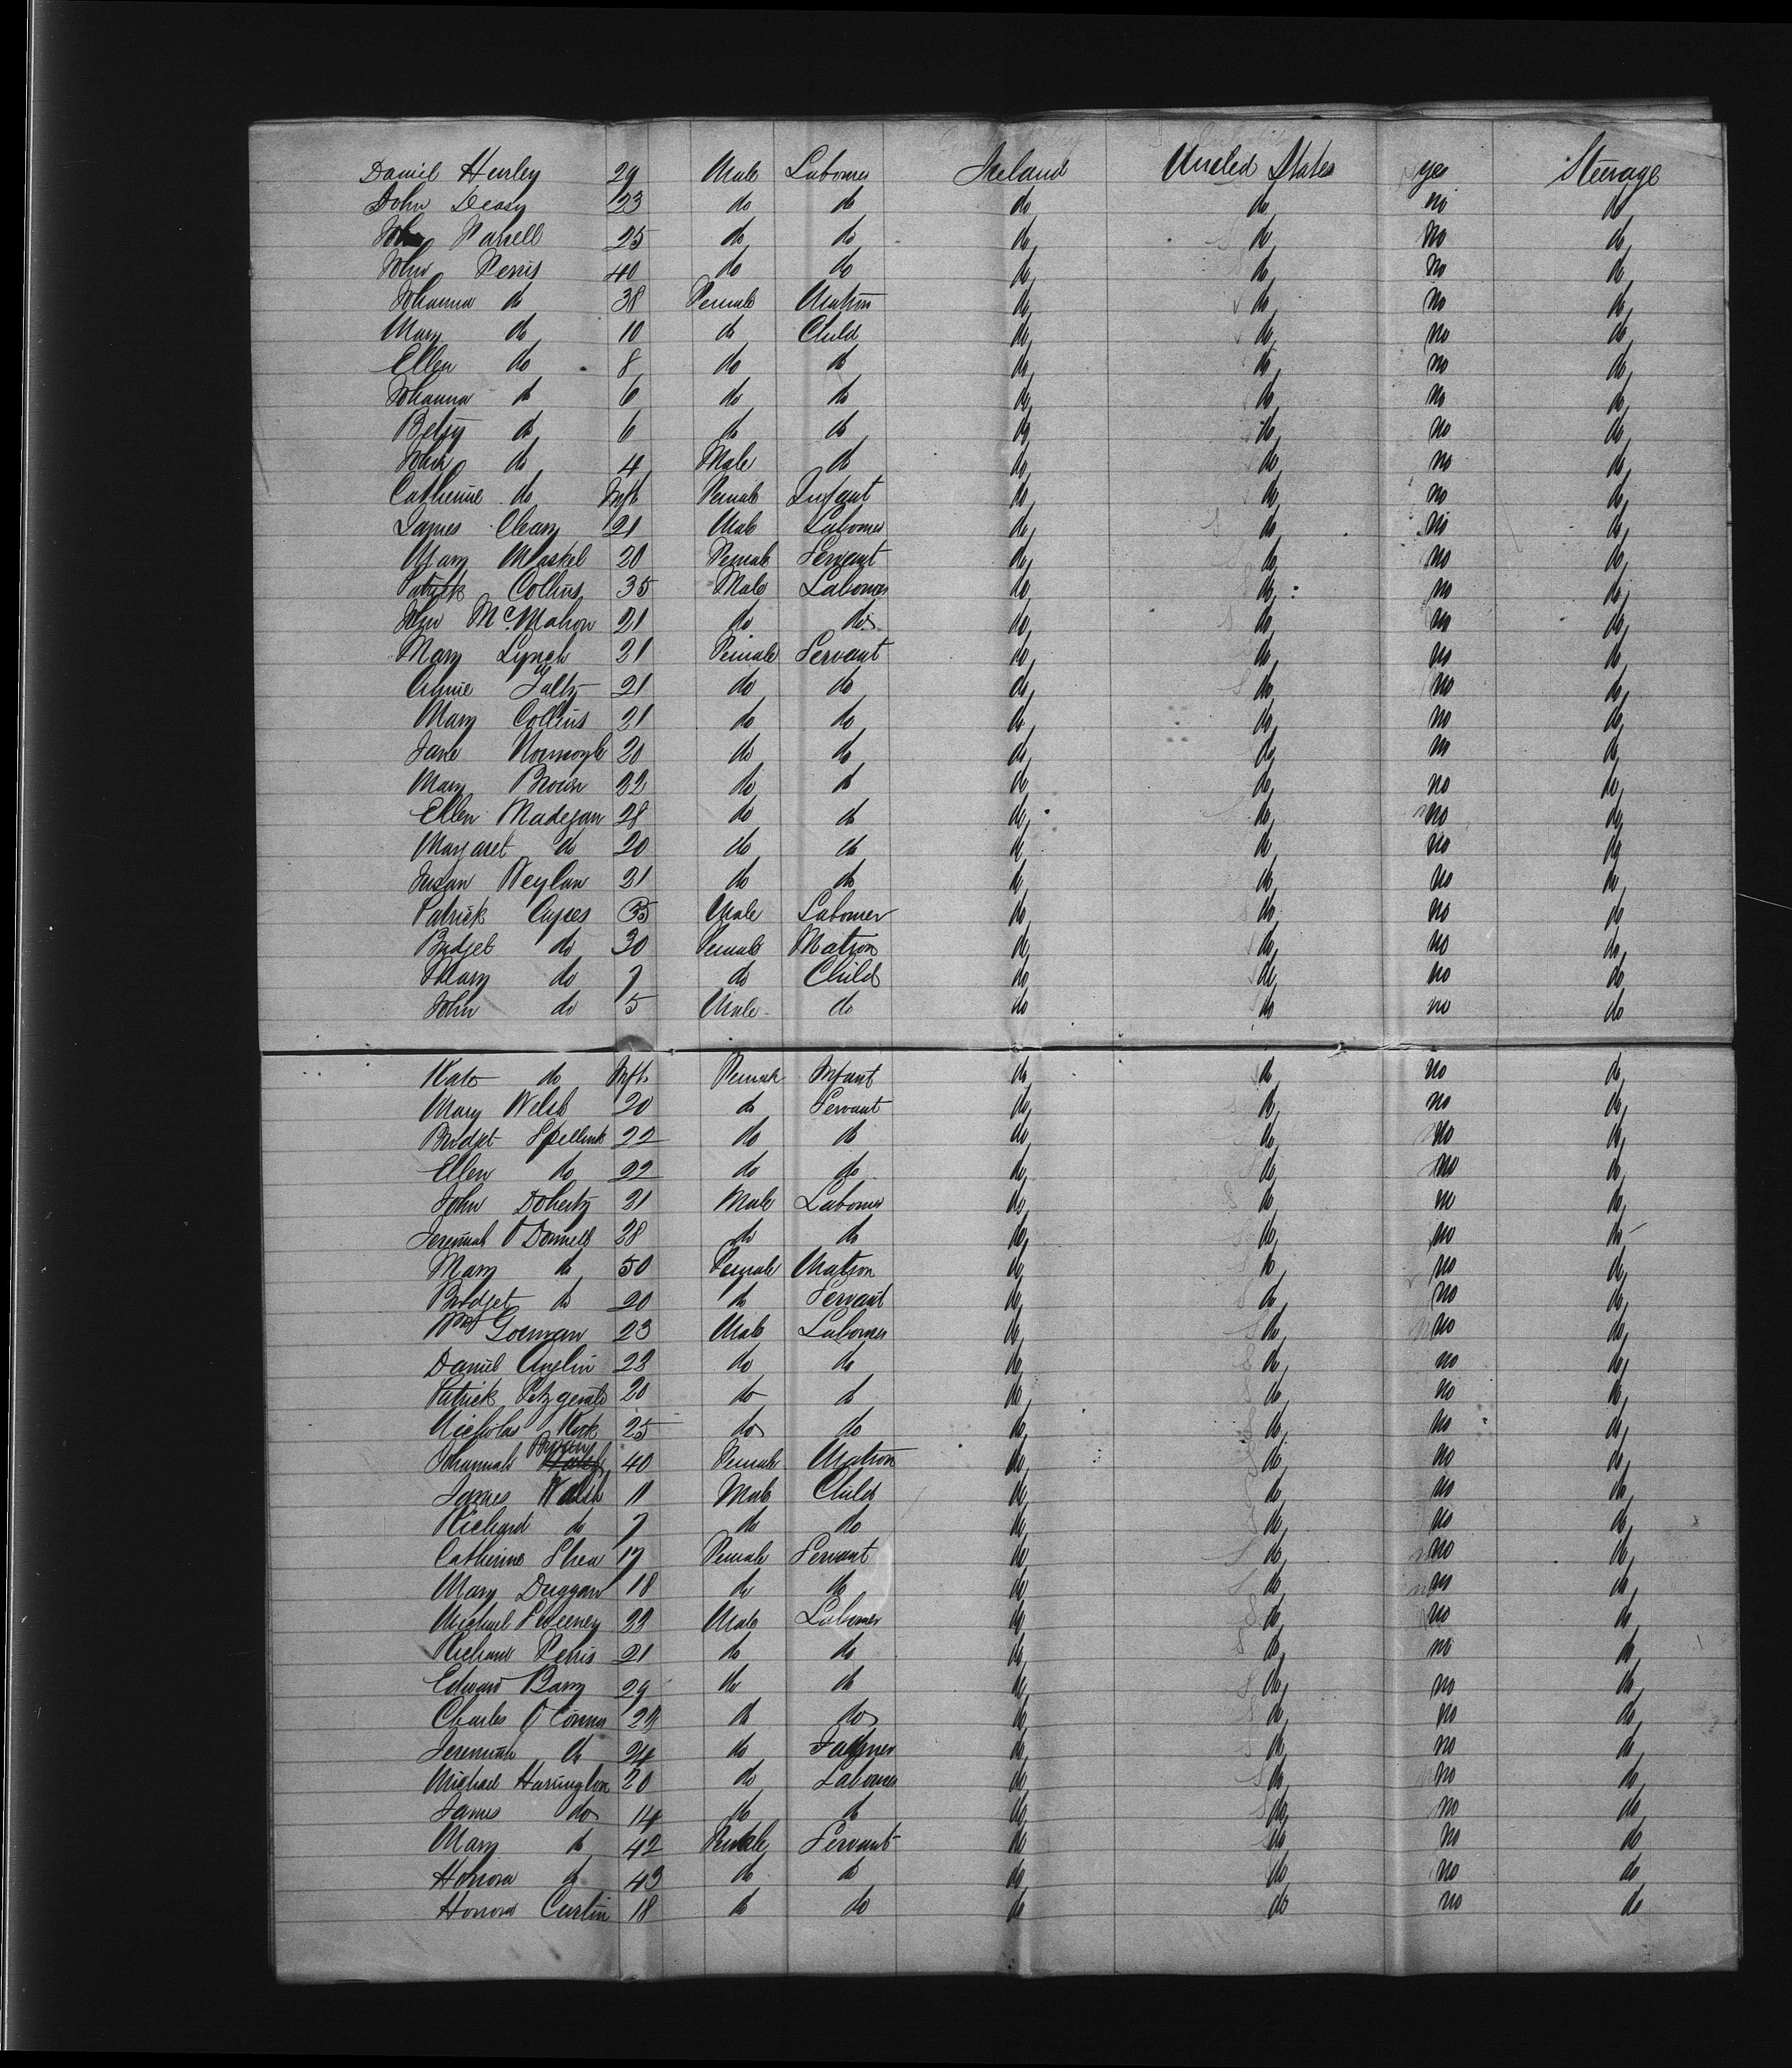 Daniel Henley 29 Male Laborer Ireland United States yes Steerage
John Deasy 23 do do do do no do
John Farrell 25 do do do do no do
John Ferris 40 do do do do no do
Johanna do 38 Female Matron do do no do
Mary do 10 do Child do do no do
Ellen do 8 do do do do no do
Johanna do 6 do do do do no do
Betsy do 6 do do do do no do
John do 4 Male do do do no do
Catherine do Inft Female Infant do do no do
James Cleary 21 Male Laborer do do no do
Mary Maskel 20 Female Servant do do no do
Patrick Collins 35 Male Laborer do do no do
John McMahon 21 do do do do no do
Mary Lynch 21 Female Servant do do no do
Annie 21 do do do do no do
Mary Collins 21 do do do do no do
Jane Normoyle 20 do do do do no do
Mary Brown 22 do do do do no do
Ellen Madegan 28 do do do do no do
Margaret do 20 do do do do no do
Susan Weylan 21 do do do do no do
Patrick Ayres 35 Male Laborer do do no do
Bridget do 30 Female Matron do do no do
Mary do 7 do Child do do no do
John do 5 Male do do do no do
Kate do Inft Female Infant do do no do
Mary Welsh 20 do Servant do do no do
Bridget 22 do do do do no do
Ellen do 22 do do do do no do
John Doherty 21 Male Laborer do do no do
Jeremiah O'Donnell 28 do do do do no do
Mary do 50 Female Matron do do no do
Bridget do 20 do Servant do do no do
Wm Gorman 23 Male Laborer do do no do
Daniel Anglin 23 do do do do no do
Patrick Fitzgerald 20 do do do do no do
Nicholas 25 do do do do no do
Johannah 40 Female Matron do do no do
James Walsh 11 Male Child do do no do
Richard do 7 do do do do no do
Catherine Shea 17 Female Servant do do no do
Mary Duggan 18 do do do do no do
Michael Sweeney 22 Male Laborer do do no do
Richard 21 do do do do no do
Edward Barry 29 do do do do no do
Charles O'Connor 28 do do do do no do
Jeremiah do 24 do Farmer do do no do
Michael Harrington 20 do Laborer do do no do
James do 14 do do do do no do
Mary do 42 Female Servant do do no do
Honora do 43 do do do do no do
Honora Curtin 18 do do do do no do